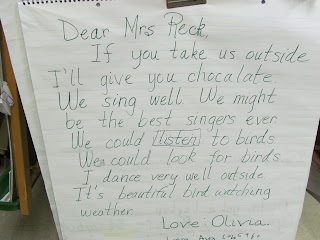 Dear Mrs Reck,
If you take us outside
I'll give you chocalate.
We sing well. We might
be the best singers ever
We could listen to birds
We could look for birds
I dance very well outside
It's beautiful bird watching
weather
Love Olivia